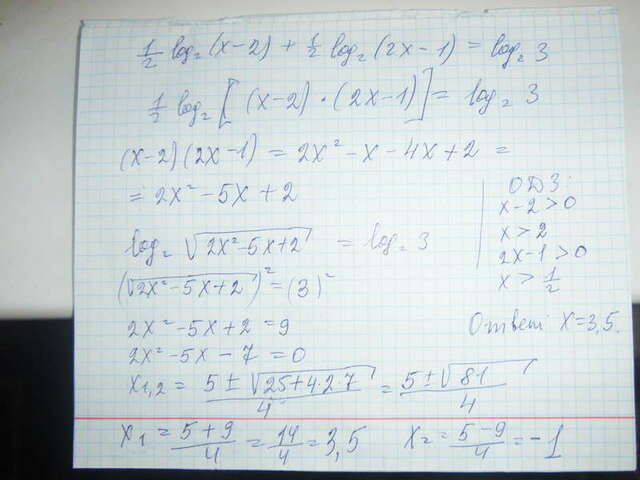 ½ log₂(x-2) + ½ log₂(2x-1) = log₂ 3
½ log₂[(x-2)·(2x-1)] = log₂ 3
(x-2)(2x-1) = 2x²-x-4x+2 =
= 2x²-5x+2
log₂ √(2x²-5x+2) = log₂ 3
(√(2x²-5x+2))² = (3)²
2x²-5x+2=9
2x²-5x-7=0
x₁,₂ = (5±√(25+4·2·7))/4 = (5±√81)/4
x₁ = (5+9)/4 = 14/4 = 3,5 x₂ = (5-9)/4 = -1
ОДЗ:
x-2>0
x>2
2x-1>0
x>½
Ответ: x=3,5.